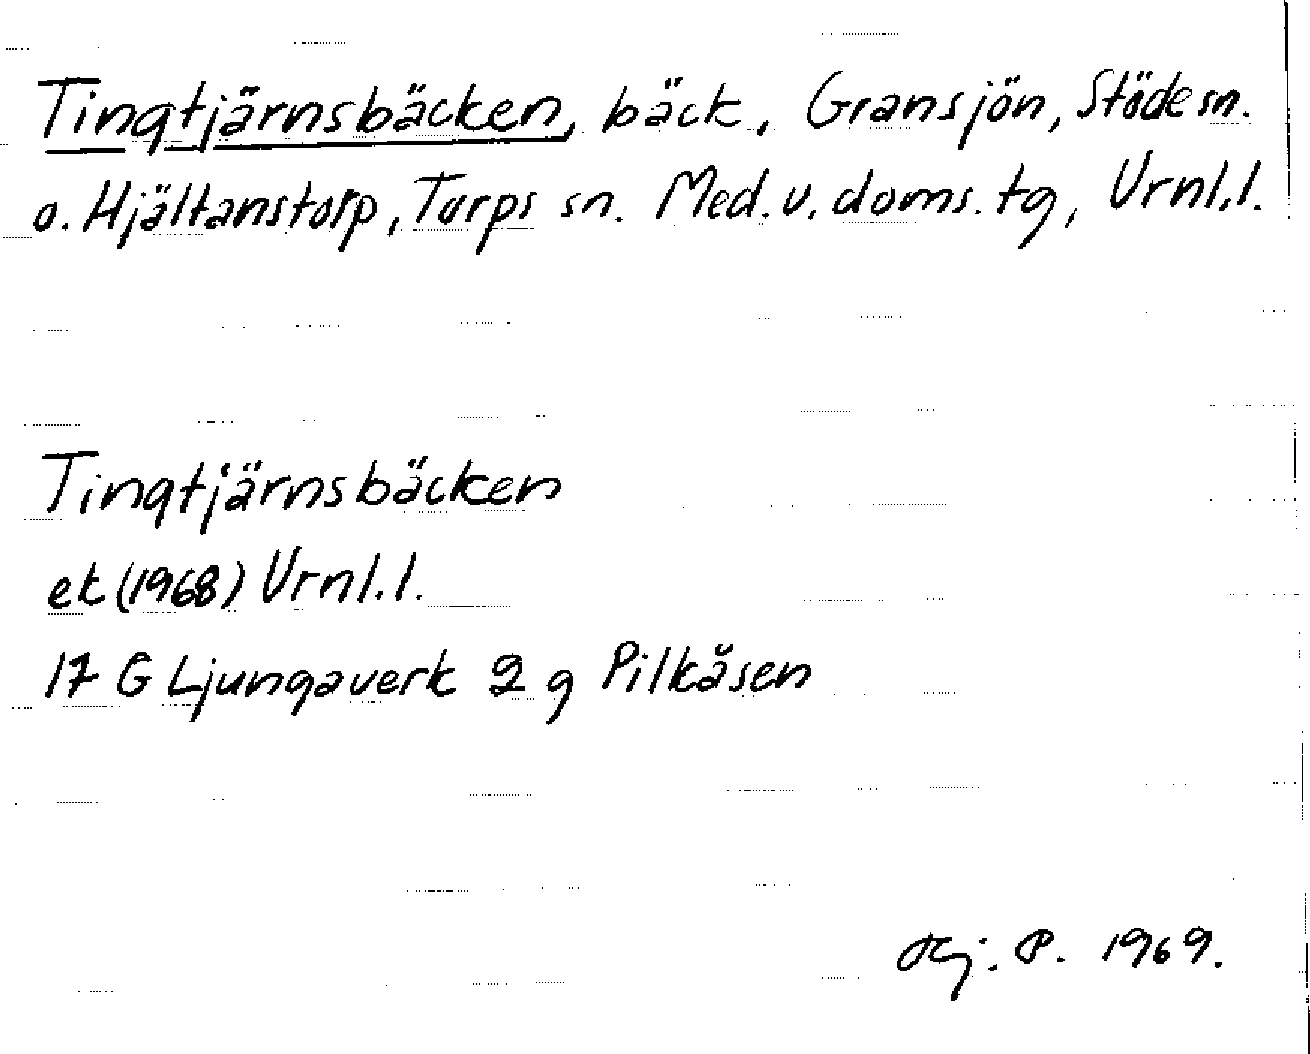 Tingtjärnsbäcken, bäck, Gransjön, Stöde sn.
o. Hjältanstorp, Torps sn. Med. v. doms. tg, Vrnl.l.
Tingtjärnsbäcken
ek (1968) Vrnl.l.
17 G Ljungaverk 2 g Pilkåsen
Kj. P. 1969.